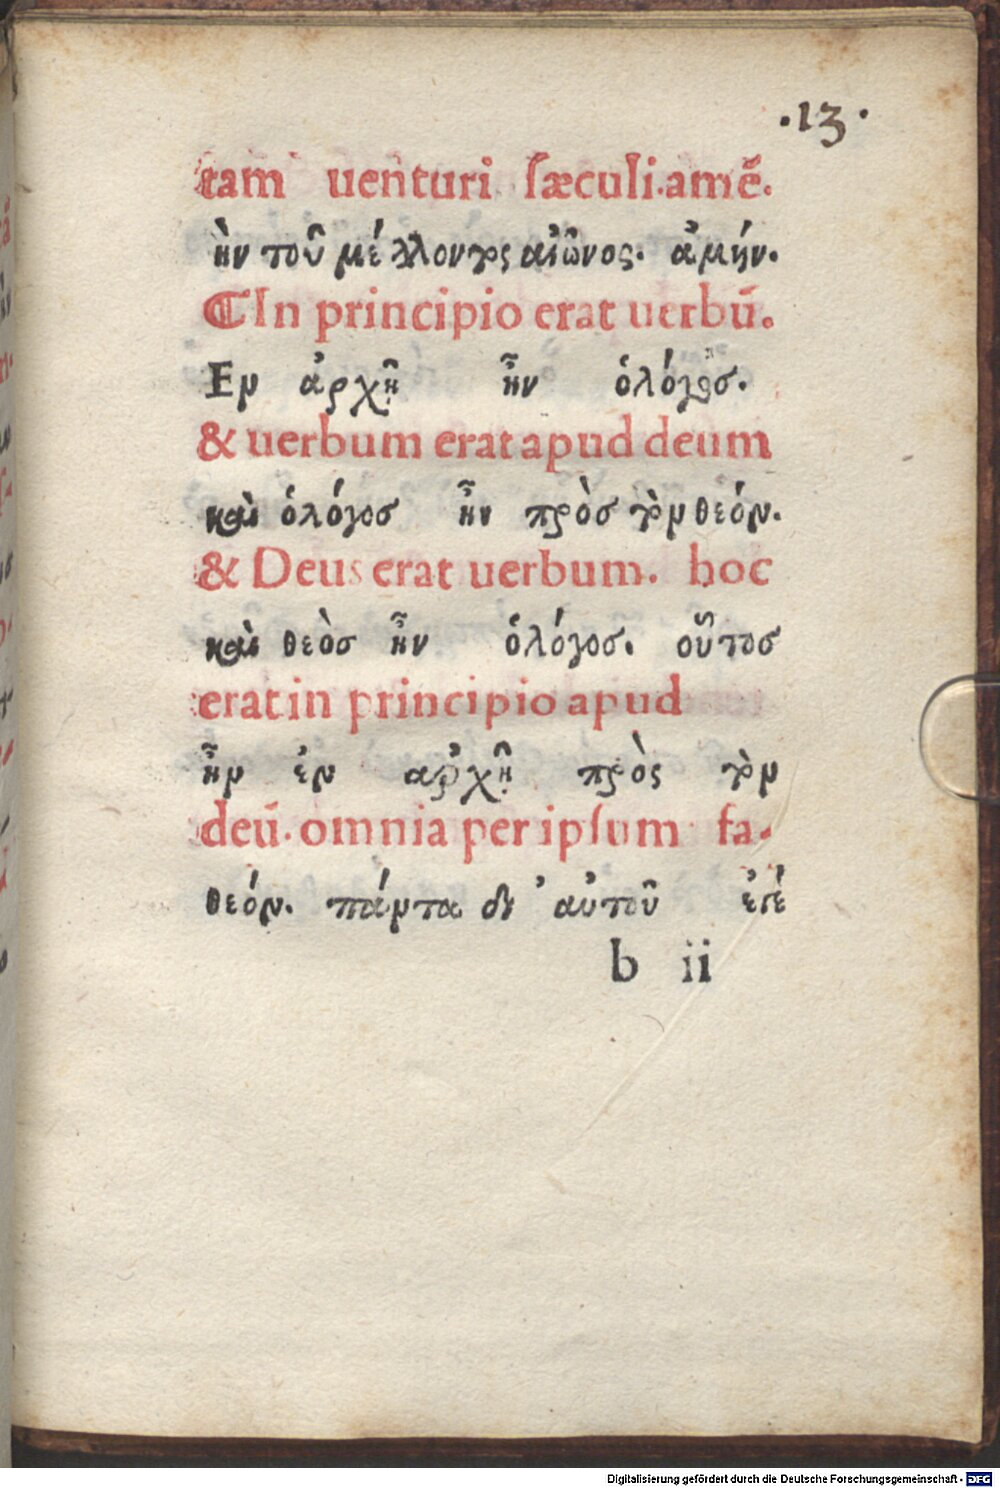 .13.
tam uenturi ſæculi.amē.
ὴν τοῦ μέλλοντος αἰῶνος. ἀμήν.
¶In principio erat uerbū.
Εν ἀρχῆ ἦν ὁλόγοσ.
& uerbum erat apud deum
καὶ ὁλόγοσ ἦν πρὸσ τὸν θεόν.
& Deus erat uerbum. hoc
καὶ θεὸσ ἦν ὁλόγοσ. οὗτοσ
erat in principio apud
ἦν ἐν αρχῆ πρὸς τὸν
deū. omnia per ipſum fa-
θεόν. πάντα δι’ αὐτοῦ ἐγέ
b ii
Digitalisierung gefördert durch die Deutsche Forschungsgemeinschaft - DFG